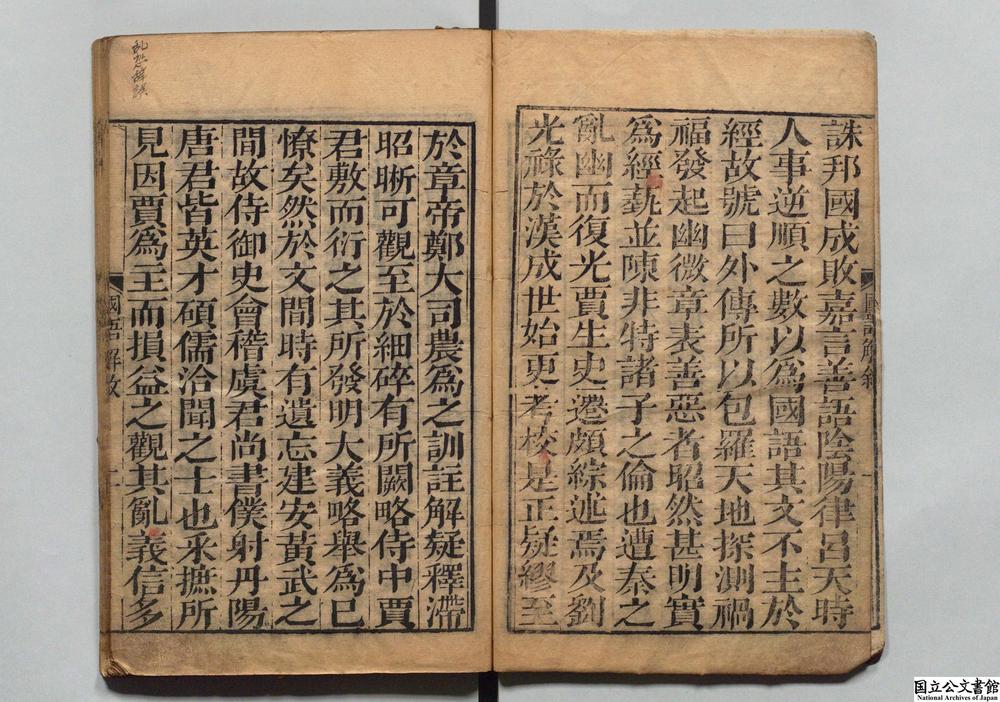 誅邦國成敗嘉言善語陰陽律呂天時
人事逆順之數以爲國語其文不主於
經故號曰外傳所以包羅天地探測禍
福發起幽微章表善惡者昭然甚明實
爲經藝並陳非特諸子之倫也遭秦之
亂幽而復光賈生史遷頗綜述焉及劉
光祿於漢成世始更考校是正疑繆至
國語解敘
於章帝鄭大司農爲之訓註解疑釋滯
昭晰可觀至於細碎有所闕略侍中賈
君敷而衍之其所發明大義略舉爲已
憭矣然於文間時有遺忘建安黃武之
間故侍御史會稽虞君尚書僕射丹陽
唐君皆英才碩儒洽聞之士也采摭所
見因賈爲主而損益之觀其亂義信多
國語解敘
国立公文書館
National Archives of Japan